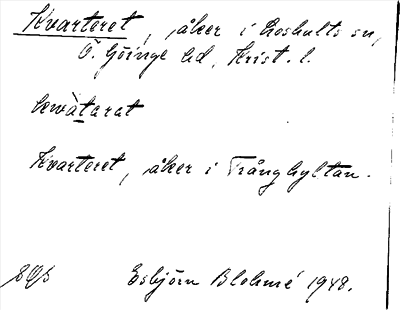 Kvarteret, åker i Loshults sn,
Ö. Göinge hd, Krist. l.
kwàtarat
Kvarteret, åker i Trånghyltan.
Esbjörn Blohmé 1948.